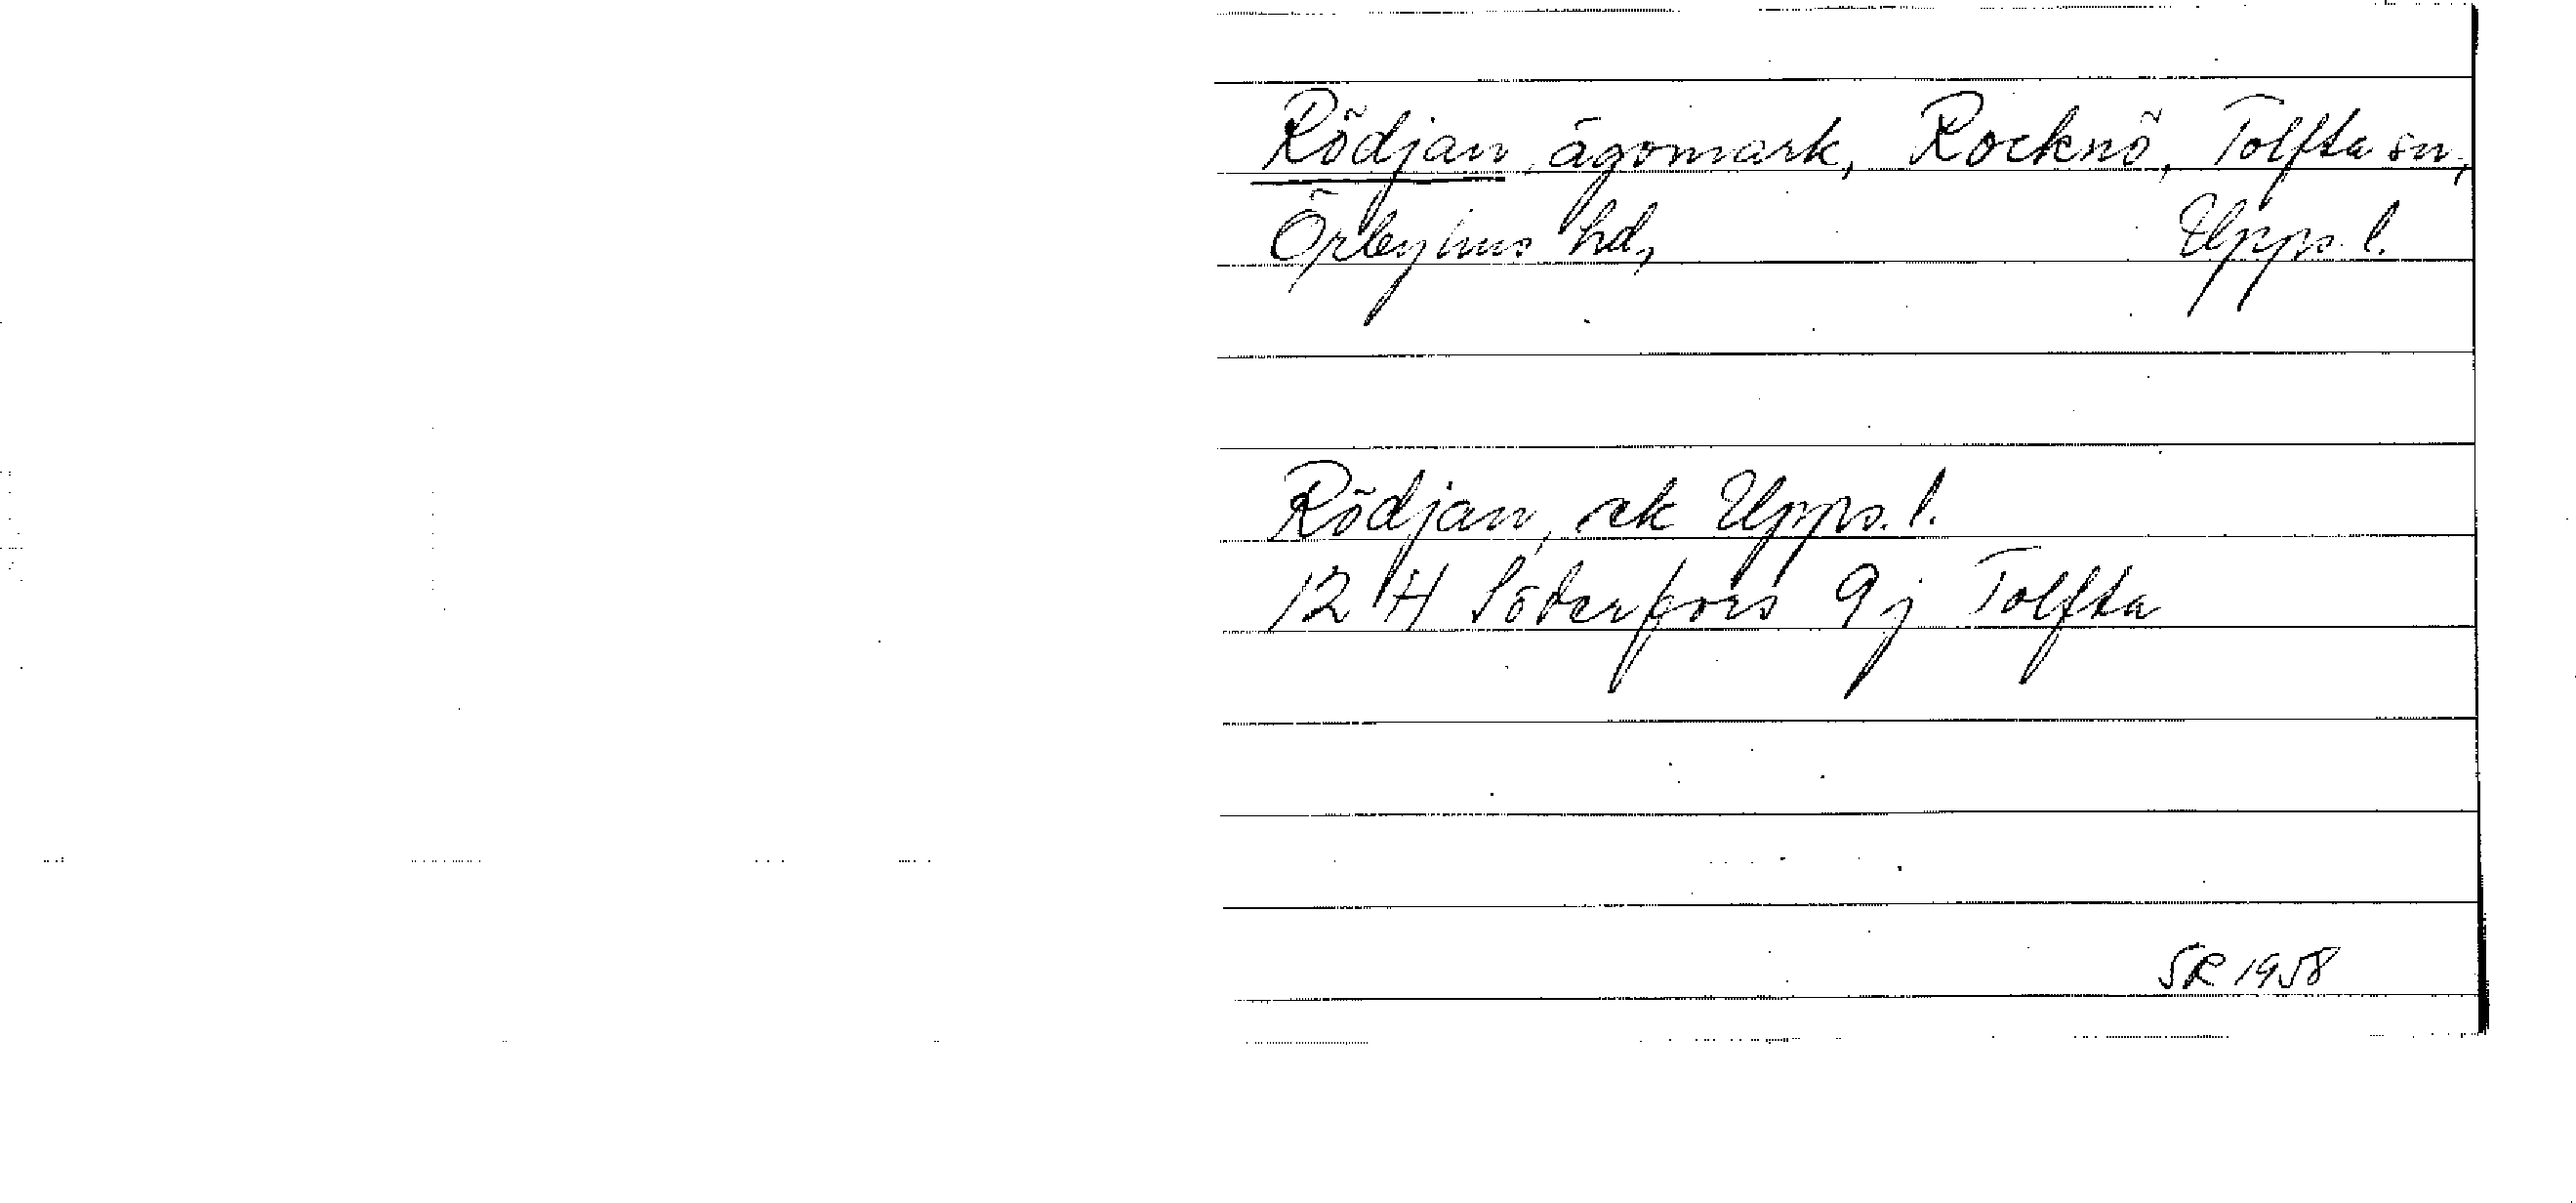 Rödjan, ägomark, Rocknö, Tolfta sn,
Örbyhus hd, Upps. l.
Rödjan, ek Upps. l.
12 H Söderfors 9j Tolfta
SR 1958